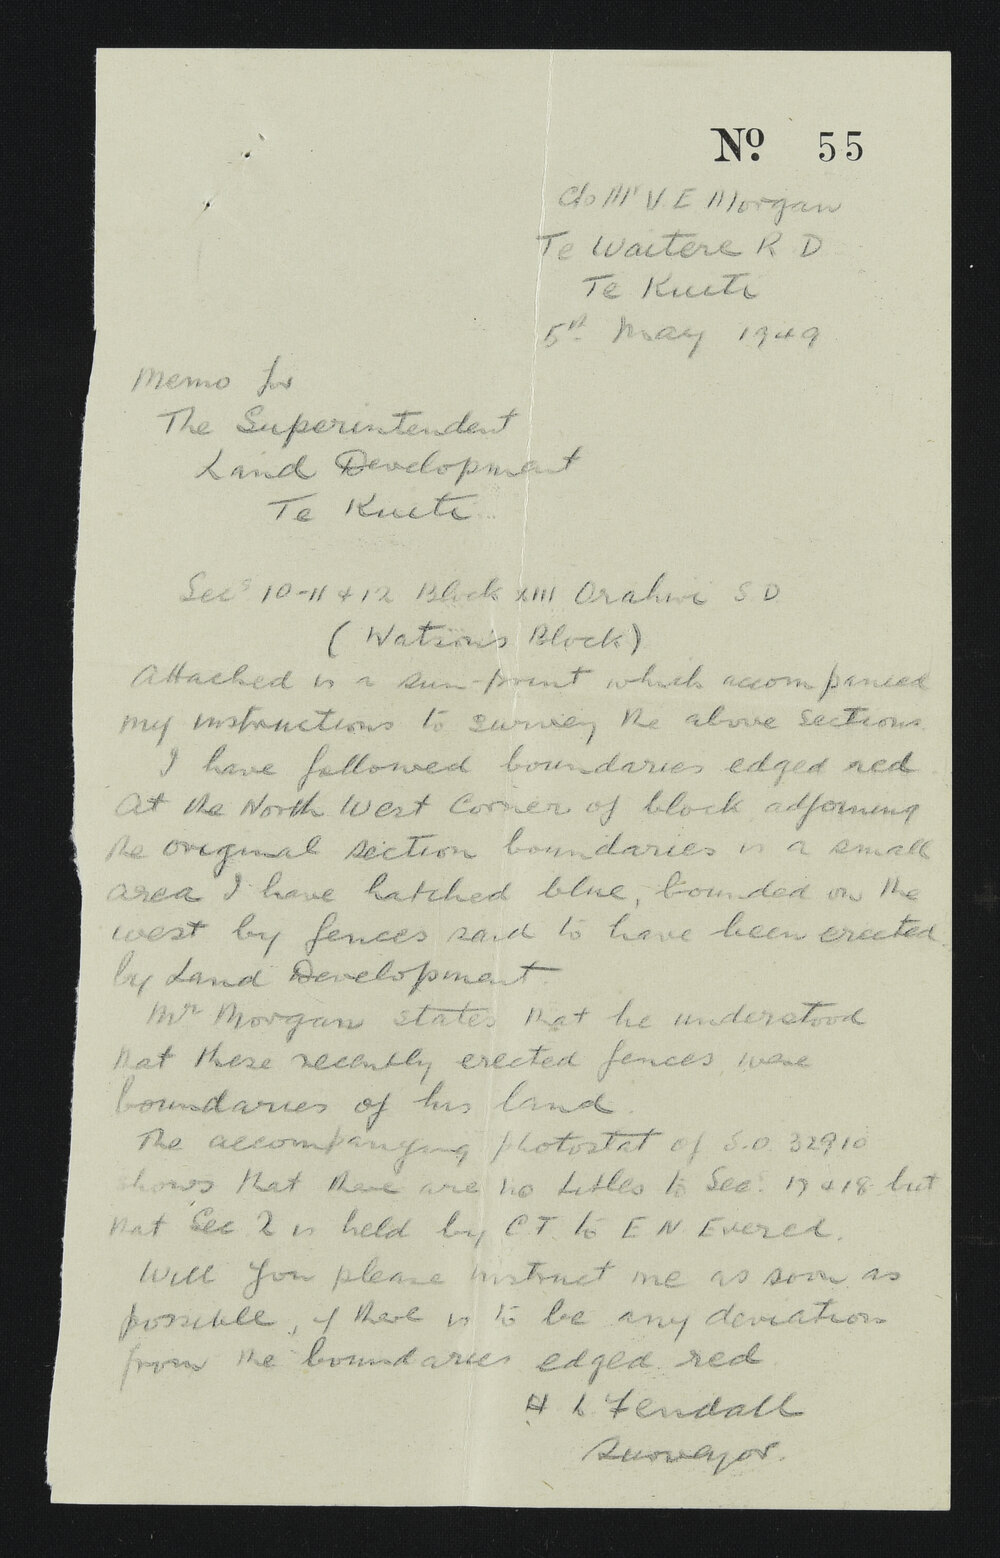 No. 55
C/o Mr V. E Morgan
Te Waitere R D
Te Kuiti
5th May 1949
Memo for
The Superintendent
Land Development
Te Kuiti
Secs 10-11 & 12 Block XIII Orahiri S.D
(Watsons Block)
Attached is a sun-print which accompanied
my instructions to survey the above sections.
I have followed boundaries edged red.
At the North West Corner of block adjoining
the original section boundaries is a small
area I have hatched blue, bounded on the
west by fences said to have been erected
by Land Development.
Mr Morgan states that he understood
that these recently erected fences were
boundaries of his land.
The accompanying photostat of S.O. 32910
shows that there are no titles to Secs. 17 & 18 but
that Sec 2 is held by C T. to E N Evered.
Will you please instruct me as soon as
possible, if there is to be any deviation
from the boundaries edged red
H L Fendall
Surveyor.